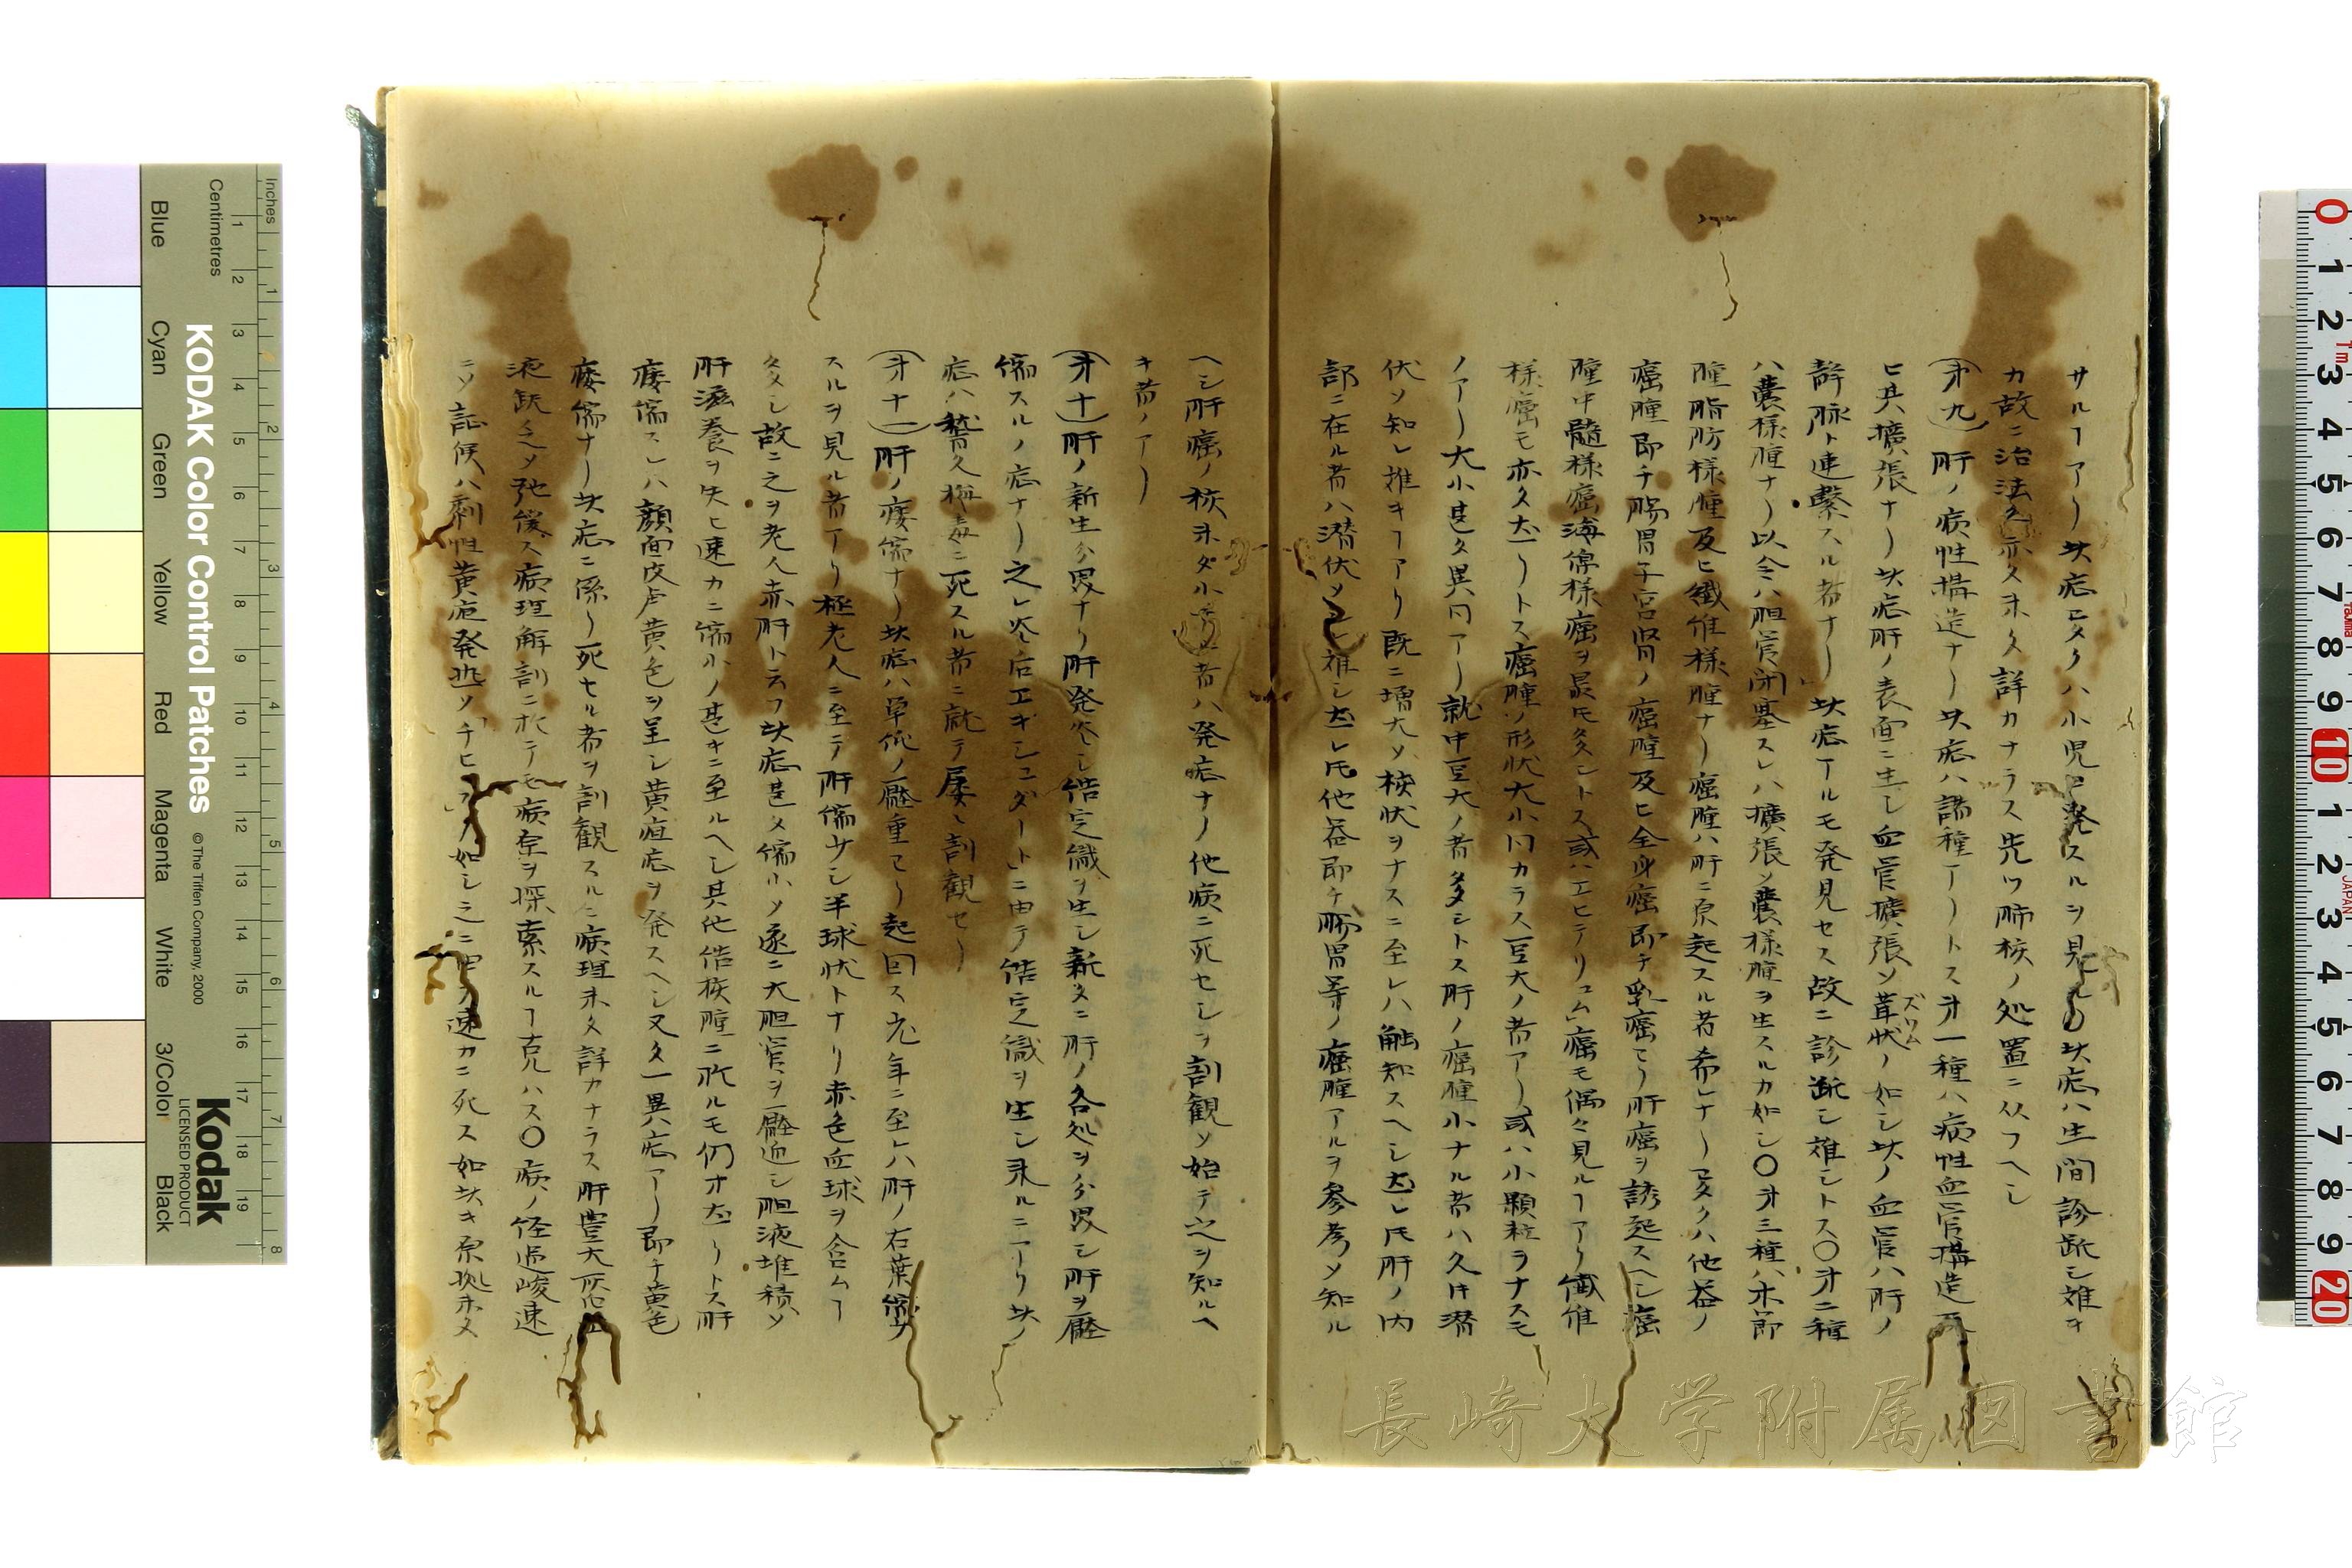 サルヿアリ此症多クハ小児ニ発スルヲ見ル〇此症ハ生間診断シ難キ
カ故ニ治法久亦タ未タ詳カナラス先ツ肺核ノ処置ニ从フヘシ
(才九)肝ノ病性構造ナリ此症ハ諸種アリトス才一種ハ病性血管構造及
ヒ其擴張ナリ此症肝ノ表面ニ生シ血管擴張ソ茸状ノ如シ此ノ血管ハ肝ノ
ズワム
静脉ト連繫スル者ナリ此症アルモ発見セス故ニ診断シ難シトス〇才二種
ハ嚢様腫ナリ以令ハ胆管閉塞スレハ擴張ソ嚢様腫ヲ生スルカ如シ〇才三種ハ木節
腫脂肪様腫及ヒ纎維様腫ナリ癌腫ハ肝ニ原起スル者希レナリ多クハ他器ノ
癌腫即チ腸胃子宮腎ノ癌腫及ヒ全身癌即チ乳癌ヨリ肝癌ヲ誘起スヘシ癌
腫中髓様癌海綿様癌ヲ最モ多シトス或ハエヒテリュム癌モ偶々見ルヿアリ纎維
様癌モ亦タ然リトス癌腫ノ形状大小同カラス豆大ノ者アリ或ハ小顆粒ヲナスモ
ノアリ大小甚タ異同アリ就中豆大ノ者多シトス肝ノ癌腫小ナル者ハ久ク潜
伏ソ知レ難キヿアリ既ニ増大ソ核状ヲナスニ至レハ触知スヘシ然レ𪜈肝ノ内
部ニ在ル者ハ潜伏ソ知レ難シ然レ𪜈他器即チ腸胃等ノ癌腫アルヲ参考ソ知ル
ヘシ肝癌ノ核未タ小ナル者ハ発症ナク他病ニ死セシヲ剖観ソ始テ之ヲ知ルヘ
キ者ノアリ
(才十)肝ノ新生分畏ナリ肝発炎シ結定織ヲ生シ新タニ肝ノ各処ヲ分畏シ肝ヲ壓
縮スルノ症ナリ之レ炎后エキシュダートニ由テ結定織ヲ生シ来ルニアリ此ノ
症ハ嘗久梅毒ニ死スル者ニ就テ屡々剖観セリ
(才十一)肝ノ痿縮ナリ此症ハ単純ノ壓重ヨリ起因ス老年ニ至レハ肝ノ右葉縮少
スルヲ見ル者アリ極老人ニ至テ肝縮少シ半球状トナリ赤色血球ヲ含ムヿ
多シ故ニ之ヲ老人赤肝ト云フ此症甚タ縮小ソ遂ニ大胆管ヲ壓迫シ胆液堆積ソ
肝滋養ヲ失ヒ速カニ縮小ノ甚キニ至ルヘシ其他結核腫ニ於ルモ仍オ然リトス肝
痿縮スレハ顔面皮膚黄色ヲ呈シ黄疸症ヲ発スヘシ又タ一異症アリ即チ黄色
痿縮ナリ此症ニ係リ死セル者ヲ剖観スルニ病理未タ詳カナラス肝豊大
液缺乏ソ弛緩ス病理解剖ニ於テモ病原ヲ探索スルヿ克ハス〇病ノ経過峻速
ニソ証候ハ劇性黄疸発熱ソチヒュスノ如シ之ニ由ソ速カニ死ス如此キ原拠未タ
長崎大学附属図書館
Inches
Centimetres
KODAK Color Control Patches
© The Tiffen Company, 2000
Kodak
LICENSED PRODUCT
Blue
Cyan
Green
Yellow
Red
Magenta
White
3/Color
Black